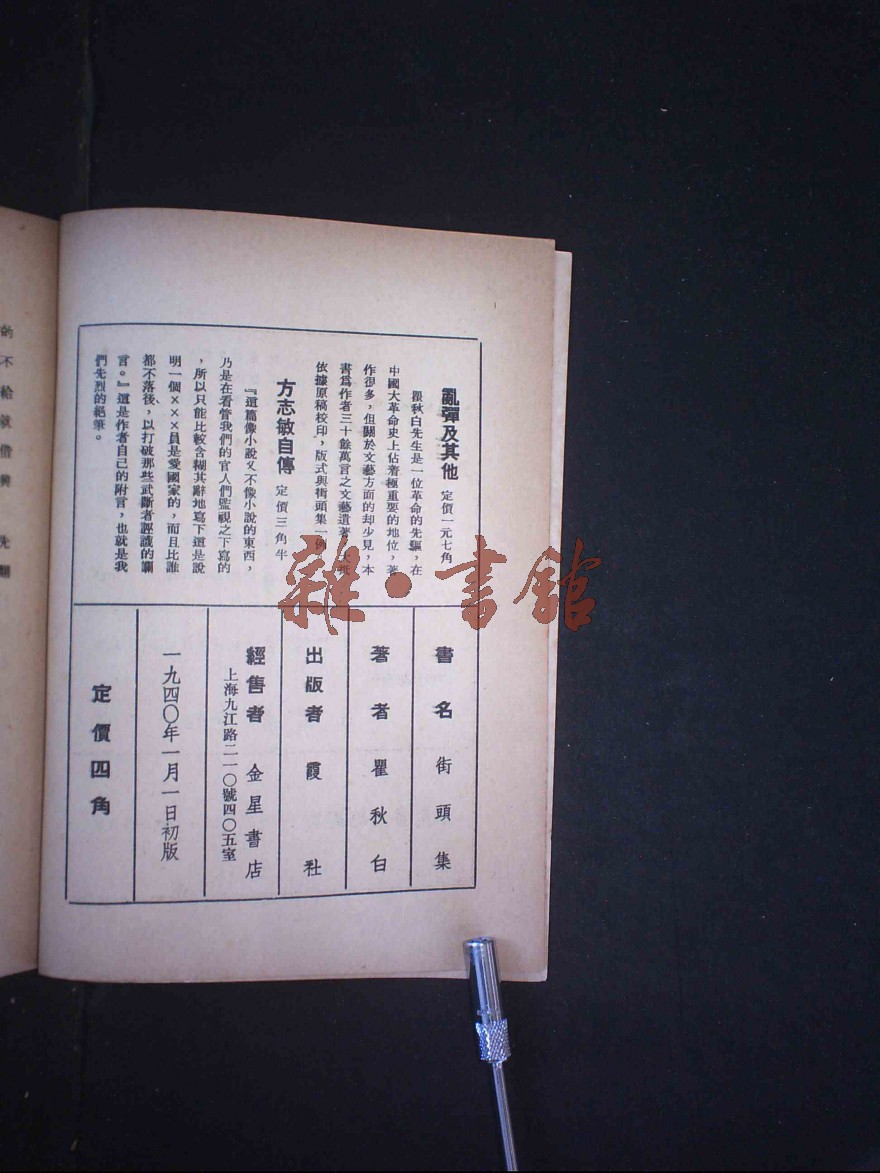 亂彈及其他 定價一元七角
瞿秋白先生是一位革命的先驅，在
中國大革命史上佔着極重要的地位，著
作很多，但關於文藝方面的却少見，本
書爲作者三十餘萬言之文藝遺著，大抵
依據原稿校印，版式與街頭集一例
方志敏自傳 定價三角半
『這篇像小說又不像小說的東西，
乃是在看管我們的官人們監視之下寫的
，所以只能比較含糊其辭地寫下這是說
明一個×××員是愛國家的，而且比誰
都不落後，以打破那些武斷者誣衊的讕
言。』這是作者自己的附言，也就是我
們先烈的絕筆。
書名 街頭集
著者 瞿秋白
出版者 霞社
經售者 金星書店
上海九江路二一〇號四〇五室
一九四〇年一月一日初版
定價四角
雜·書館